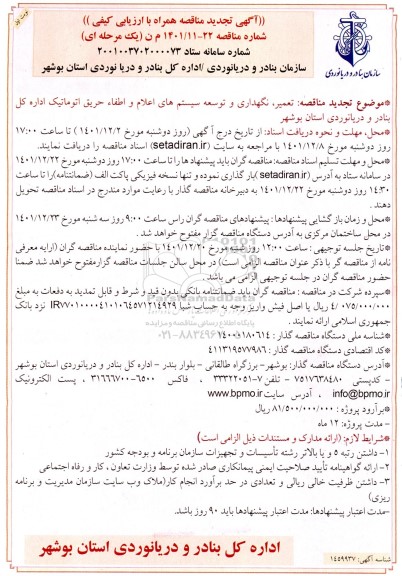 نوبت اول
((آگهی تجدید مناقصه همراه با ارزیابی کیفی ))
شماره مناقصه ۲۲-۱۴۰۱/۱۱ م ن (یک مرحله ای)
شماره سامانه ستاد ۲۰۰۱۰۰۳۷۰۲۰۰۰۰۷۳
سازمان بنادر و دریانوردی /اداره کل بنادر و دریا نوردی استان بوشهر
سازمان بنادر و دریانوردی
*موضوع تجدید مناقصه: تعمیر، نگهداری و توسعه سیستم های اعلام و اطفاء حریق اتوماتیک اداره کل
بنادر و دریانوردی استان بوشهر
*محل، مهلت و نحوه دریافت اسناد: از تاریخ درج آ گهی (روز دوشنبه مورخ ۱۴۰۱/۱۲/۲ ) تا ساعت ۱۷:۰۰
روز دوشنبه مورخ ۱۴۰۱/۱۲/۸ با مراجعه به سایت (setadiran.ir) اسناد مناقصه را دریافت نمایند.
*محل و مهلت تسلیم اسناد مناقصه: مناقصه گران باید پیشنهاد ها را تا ساعت ۱۷:۰۰ روز دوشنبه مورخ ۱۴۰۱/۱۲/۲۲
در سامانه ستاد به آدرس (setadiran.ir )بار گذاری نموده و تنها نسخه فیزیکی پاکت الف (ضمانتنامه)را تا ساعت
۱۴:۳۰ روز دوشنبه مورخ ۱۴۰۱/۱۲/۲۲ به دبیرخانه مناقصه گذار با رعایت موارد مندرج در اسناد مناقصه تحویل
دهند .
*محل و زمان باز گشایی پیشنهادها : پیشنهادهای مناقصه گران راس ساعت ۹:۰۰ روز سه شنبه مورخ ۱۴۰۱/۱۲/۲۳
در محل ساختمان مرکزی به آدرس دستگاه مناقصه گزار مفتوح خواهد شد .
*تاریخ جلسه توجیهی : ساعت ۱۲:۰۰ روز شنبه مورخ ۱۴۰۱/۱۲/۲۰ با حضور نماینده مناقصه گران (ارایه معرفی
نامه از مناقصه گر با ذکر عنوان مناقصه الزامی است) در محل سالن جلسات مناقصه گزار مفتوح خواهد شد ضمنا
حضور مناقصه گران در جلسه توجیهی الزامی می باشد .
*سپرده شرکت در مناقصه : مناقصه گران باید ضمانتنامه بانکی بدون قید و شرط و قابل تمدید به دفعات به مبلغ
۴/۰۷۵/۰۰۰/۰۰۰ ریال یا اصل فیش واریز وجه به حساب شبا IR۷۷۰۱۰۰۰۰۴۱۰۱۰۶۴۵۷۱۲۱۴۹۲۹ نزد بانک
جمهوری اسلامی ارائه نمایند .
*شناسه ملی دستگاه مناقصه گذار : ۱۴۰۰۰۱۸۰۶۱۴
*کد اقتصادی دستگاه مناقصه گذار : ۴۱۱۳۱۹۵۷۷۹۸۶
*آدرس دستگاه مناقصه گذار: بوشهر- بزرگراه طالقانی - بلوار بندر - اداره کل بنادر و دریانوردی استان بوشهر
- کدپستی ۷۵۱۷۶۳۸۴۸۰ - تلفن ۷-۳۳۳۲۲۰۵۱ ، فاکس ۶۵۰۰-۳۱۶۶۶۷۰۰ ، پست الکترونیک
info@bpmo.ir ، آدرس سایت www.bpmo.ir
*برآورد پروژه : ۸۱/۵۰۰/۰۰۰/۰۰۰ ریال
- مدت پروژه: ۱۲ ماه
*شرایط لازم: (ارائه مدارک و مستندات ذیل الزامی است)
۱- داشتن رتبه ۵ و یا بالاتر رشته تأسیسات و تجهیزات سازمان برنامه و بودجه کشور
۲- ارائه گواهینامه تأیید صلاحیت ایمنی پیمانکاری صادر شده توسط وزارت تعاون ، کار و رفاه اجتماعی
۳- داشتن ظرفیت خالی ریالی و تعدادی در حد برآورد انجام کار(ملاک وب سایت سازمان مدیریت و برنامه
ریزی)
-مدت اعتبار پیشنهادها: مدت اعتبار پیشنهادها باید ۹۰ روز باشد.
اداره کل بنادر و دریانوردی استان بوشهر
شناسه آگهی: ۱۴۵۹۹۳۷